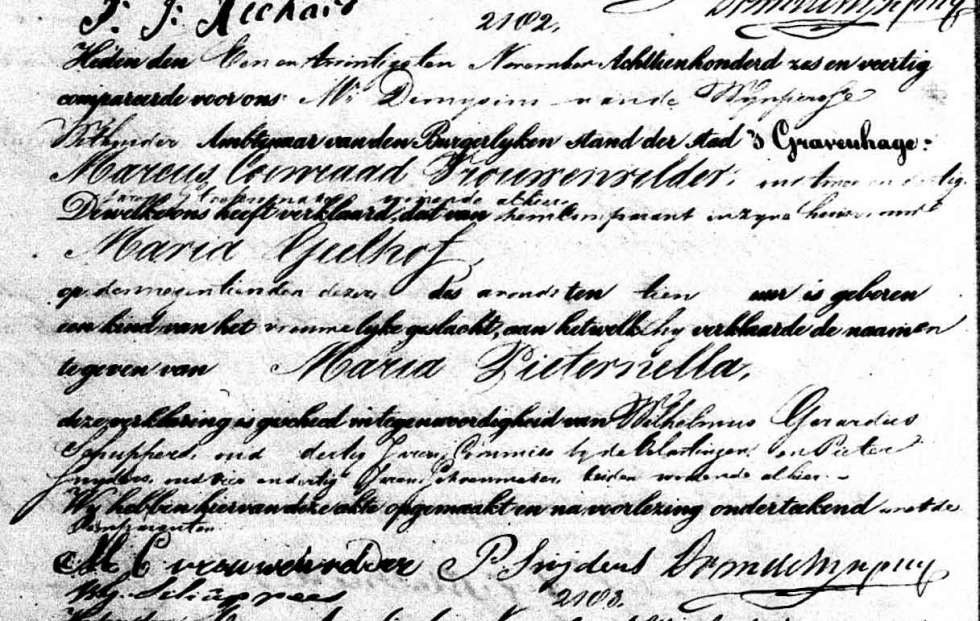 2102.
Heden den Een en twintigsten November Achttienhonderd zes en veertig
compareerde voor ons Mr Dionysius van de Wijnpersse
Wethouder Ambtenaar van den Burgerlyken stand der stad 's Gravenhage:
Marcus Coenraad Vrouwenvelder, oud twee en dertig
Jaren, wonende alhier,
Dewelke ons heeft verklaard, dat van hem Comparant en zyne huisvrouw
Maria Geelhof,
op den negentienden dezer des avonds ten tien uur is geboren
een kind van het vrouwelyke geslacht, aan hetwelk hy verklaarde de naamen
te geven van Maria Pieternella,
deze verklaring is geschied in tegenwoordigheid van Wilhelmus Gerardus
oud dertig Jaren, Commies by de belastingen en Pieter
Snyders, oud en dertig Jaren, Schoenmaker, beiden wonende alhier.
Wy hebben hiervan deze akte opgemaakt en na voorlezing onderteekend met de
Comparanten
M C Vrouwenvelder P. Snijders
2103.